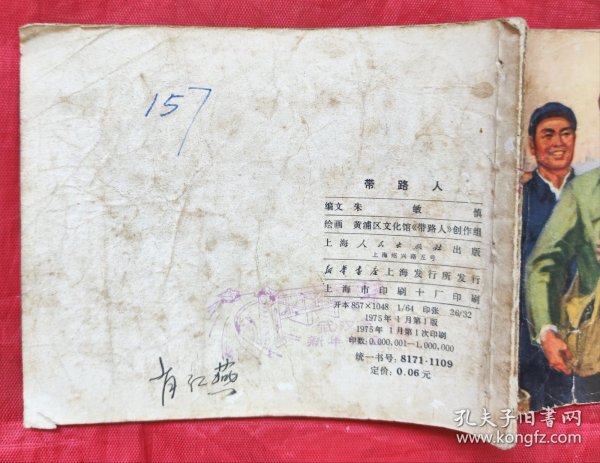 157
带路人
编文 朱敏慎
绘画 黄浦区文化馆《带路人》创作组
上海人民出版社出版
上海绍兴路五号
新华书店上海发行所发行
上海市印刷十厂印刷
开本 857×1048 1/64 印张 26/32
1975年1月第1版
1975年1月第1次印刷
印数:0,000,001—1,000,000
统一书号: 8171·1109
定价: 0.06元
肖红燕
孔夫子旧书网
www.kongfz.com